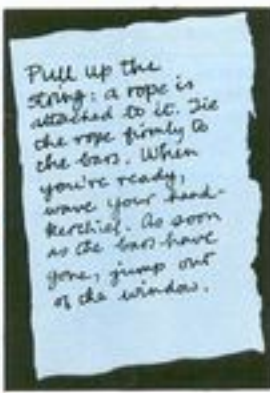 Pull up the
string: a rope is
attached to it. Tie
the rope firmly to
the bars. When
you're ready,
wave your hand-
kerchief. As soon
as the bars have
gone, jump out
of the window.